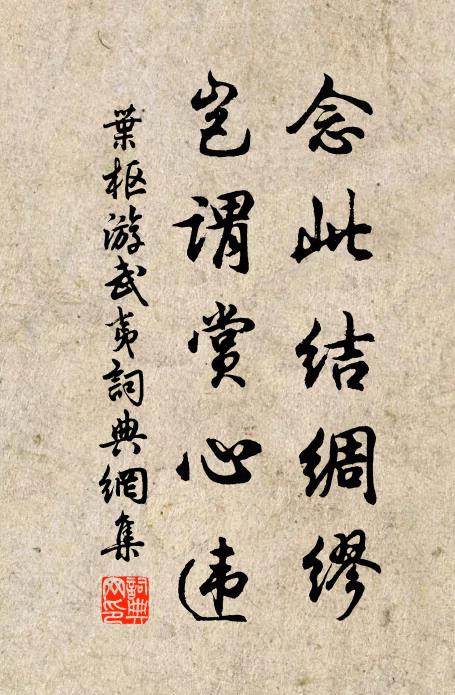 念此结绸缪
岂谓赏心违
葉枢游武夷詞典網集
詞典网印